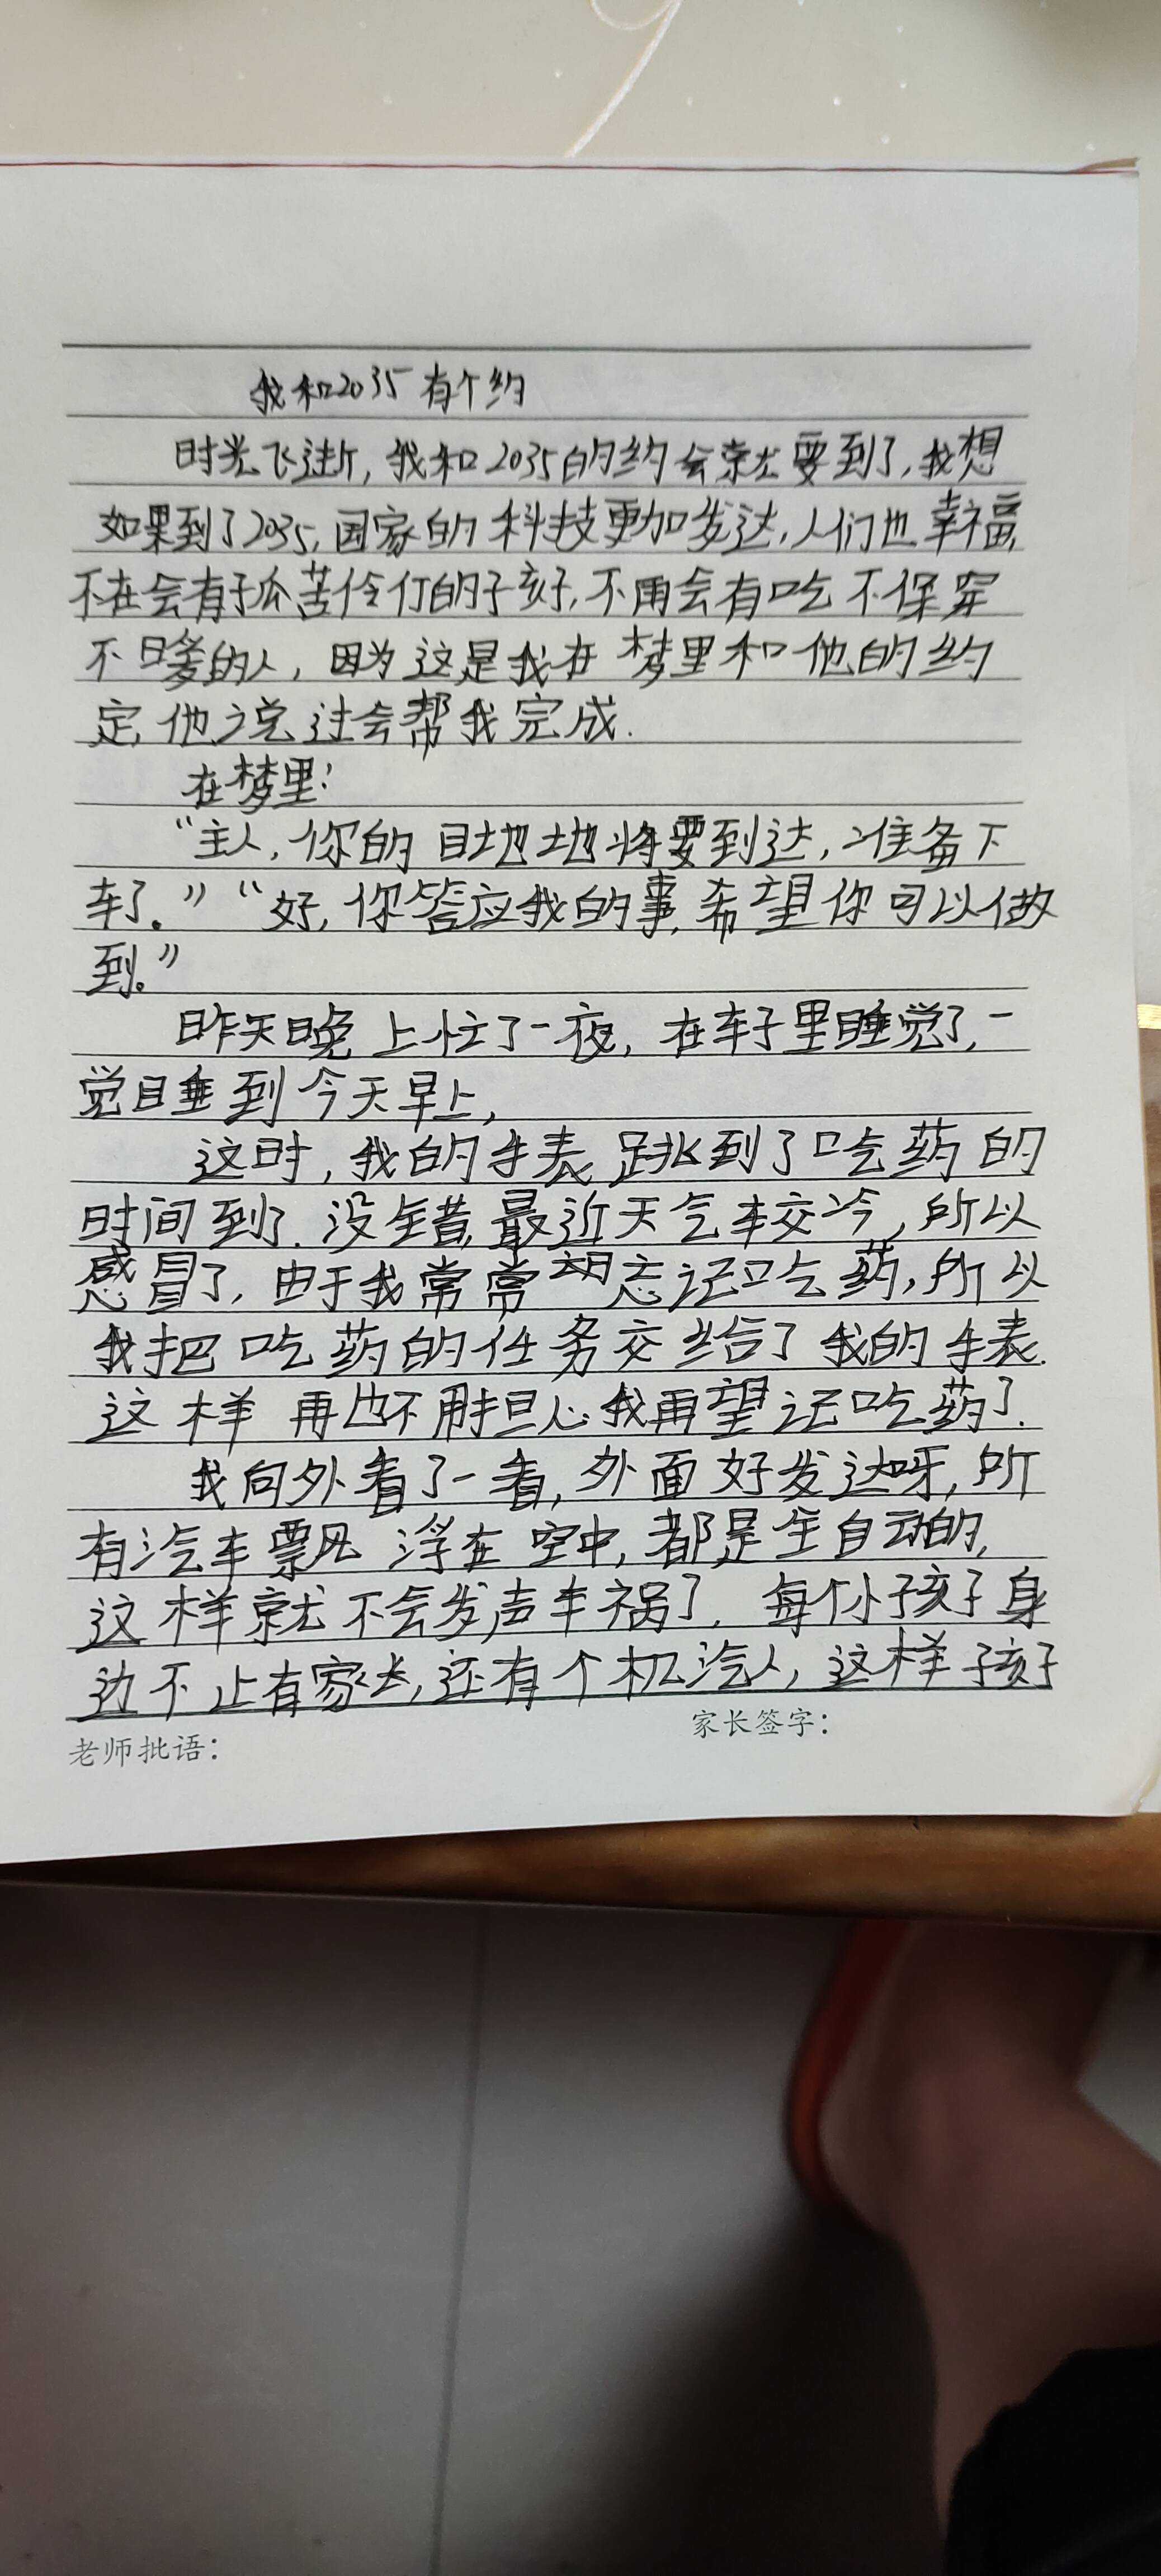 我和2035有个约
时光飞逝,我和2035的约会就要到了,我想
如果到了2035,国家的科技更加发达,人们也幸福,
不在会有孤苦伶仃的孩子,不用会有吃不保穿
不暖的人,因为这是我在梦里和他的约
定,他说过会帮我完成.
在梦里:
“主人,你的目地地将要到达,准备下
车了。”“好,你答应我的事,希望你可以做
到。”
昨天晚上忙了一夜,在车子里睡觉了,一
觉睡到今天早上,
这时,我的手表跳到了吃药的
时间到了.没错,最近天气较冷,所以
感冒了,由于我常常忘记吃药,所以
我把吃药的任务交给了我的手表.
这样再也不用担心我再望记吃药了.
我向外看了一看,外面好发达呀,所
有汽车飘浮在空中,都是全自动的,
这样就不会发声车祸了.每个小孩子身
边不止有家长,还有个机汽人,这样孩子
老师批语:
家长签字: